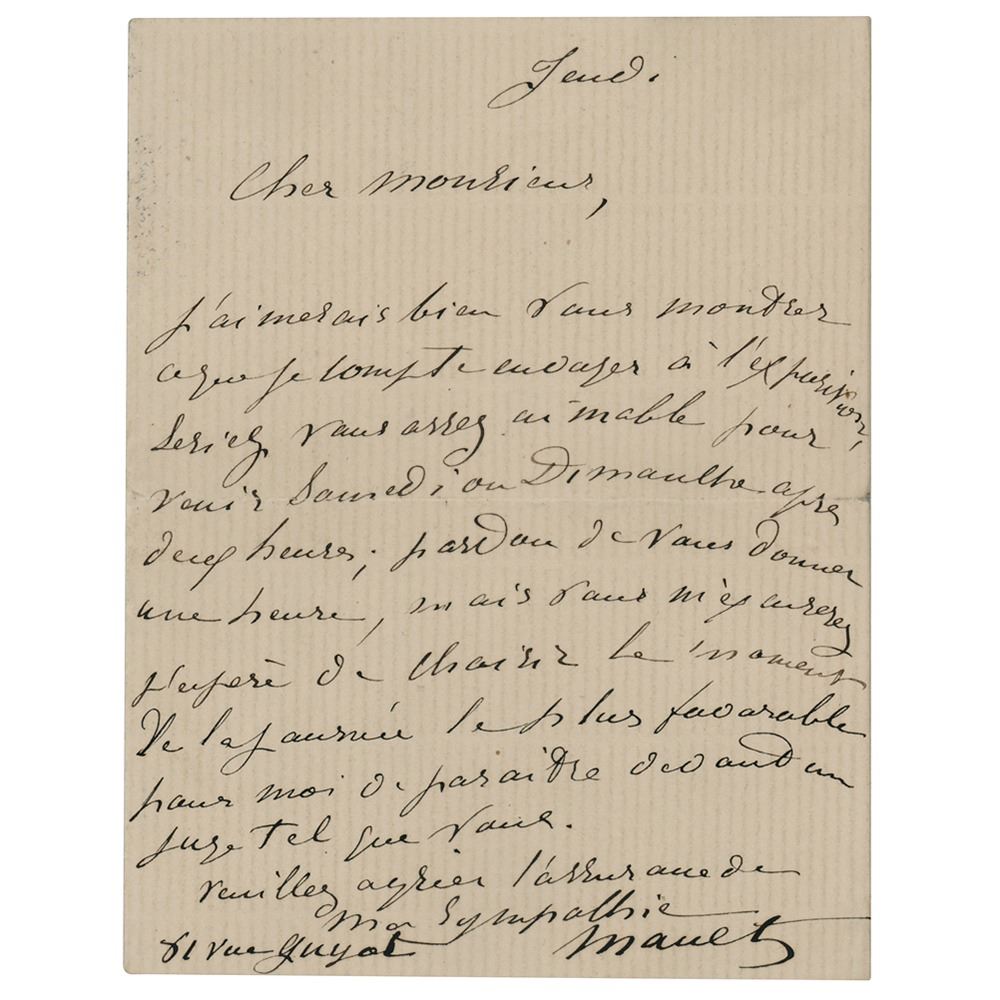 Jeudi
Cher monsieur,
j'aimerais bien vous montrer
ce que je compte envoyer à l'exposition,
seriez vous assez aimable pour
venir Samedi ou Dimanche après
deux heures; pardon de vous donner
une heure, mais vous m'excuserez
j'espère de choisir le moment
de la journée le plus favorable
pour moi de paraître devant un
juge tel que vous.
veuillez agréer l'assurance de
ma Sympathie
81 rue Guyot Manet